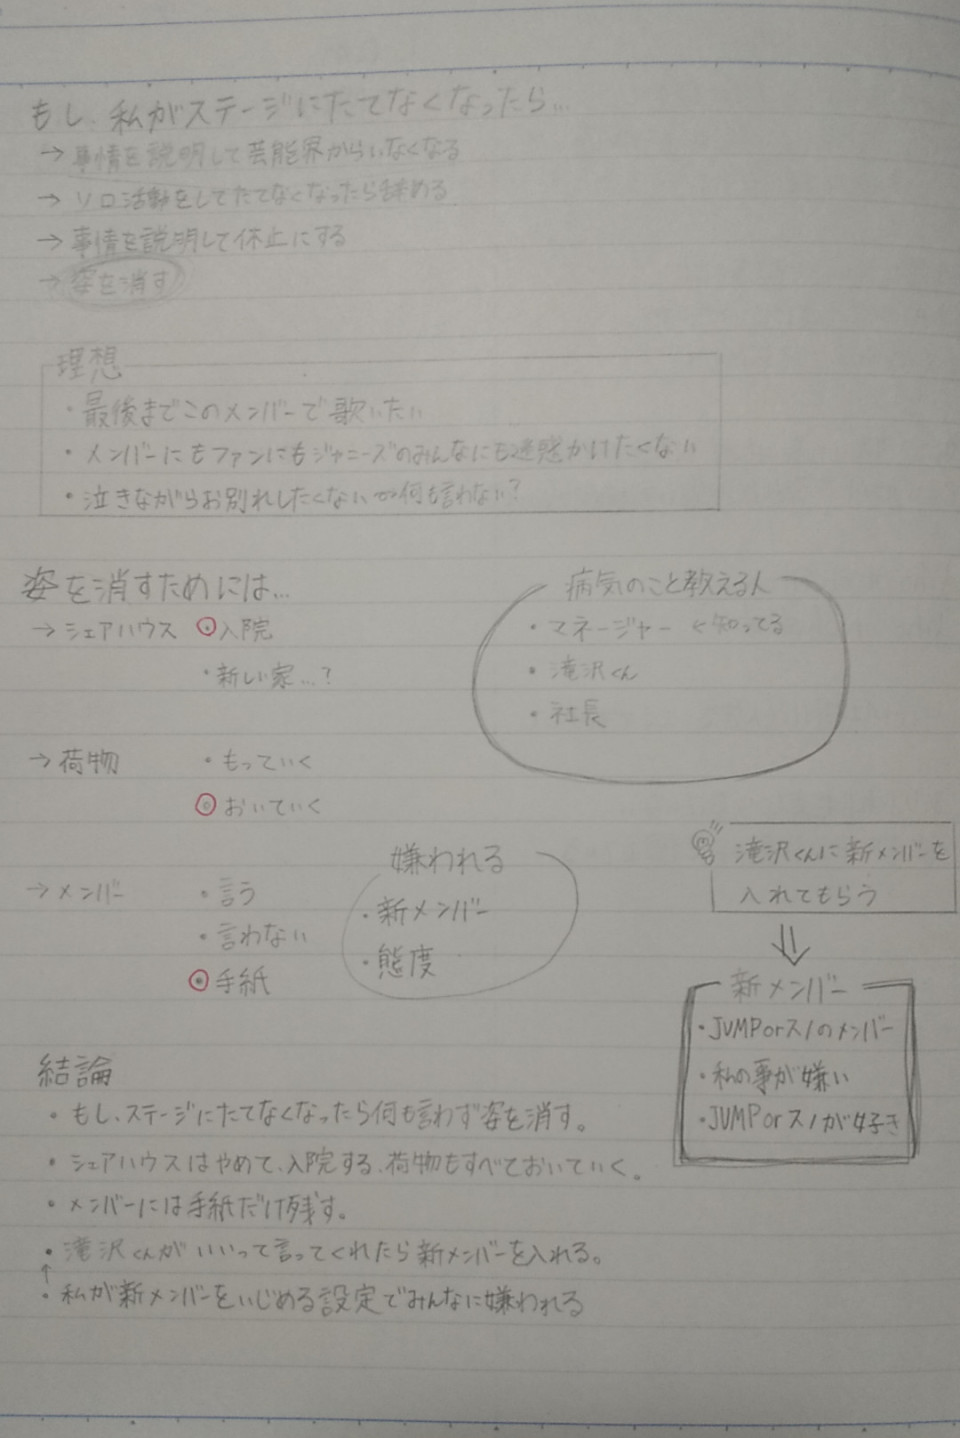 もし、私がステージにたてなくなったら...
→ 事情を説明して芸能界からいなくなる
→ ソロ活動をしてたてなくなったら辞める
→ 事情を説明して休止にする
→ 姿を消す
理想
・最後までこのメンバーで歌いたい
・メンバーにもファンにもジャニーズのみんなにも迷惑かけたくない
・泣きながらお別れしたくない⇔何も言わない?
姿を消すためには...
→ シェアハウス ・入院
・新しい家...?
病気のこと教える人
・マネージャー ←知ってる
・滝沢くん
・社長
→ 荷物 ・もっていく
・おいていく
→ メンバー ・言う
・言わない
・手紙
嫌われる
・新メンバー
・態度
滝沢くんに新メンバーを
入れてもらう
⇓
新メンバー
・JUMPorスノのメンバー
・私の事が嫌い
・JUMPorスノが好き
結論
・もし、ステージにたてなくなったら何も言わず姿を消す。
・シェアハウスはやめて、入院する、荷物もすべておいていく。
・メンバーには手紙だけ残す。
・滝沢くんがいいって言ってくれたら新メンバーを入れる。
↑
・私が新メンバーをいじめる設定でみんなに嫌われる